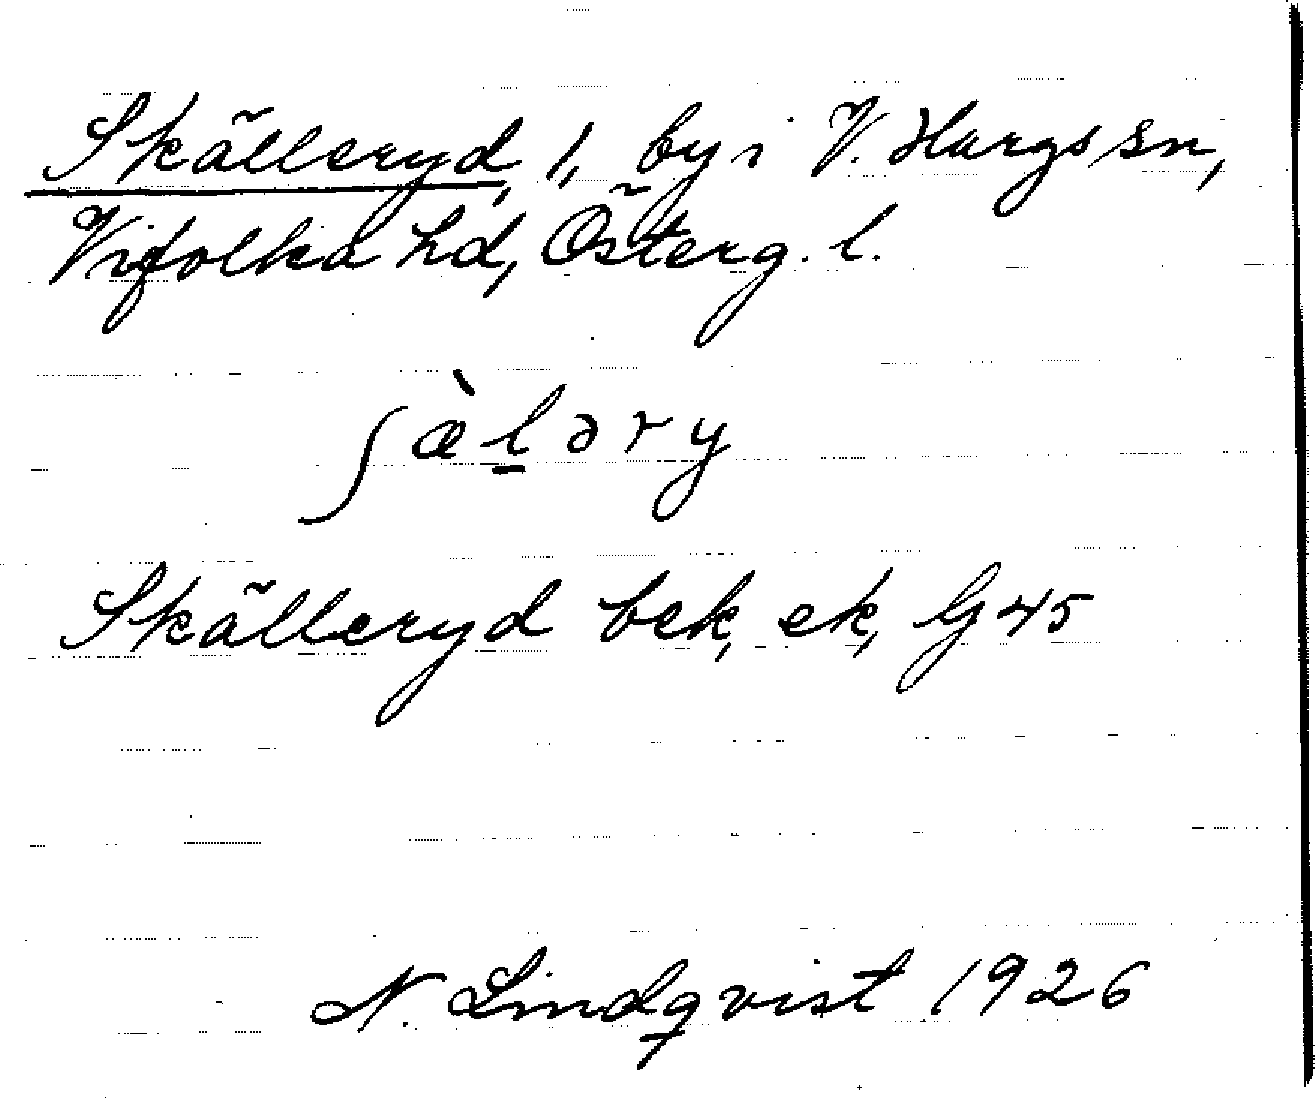 Skälleryd, 1, by i V. Hargs sn,
Vifolka hd, Österg. l.
ʃæ̀l̲əry
Skälleryd bek, ek, G45
N. Lindqvist 1926